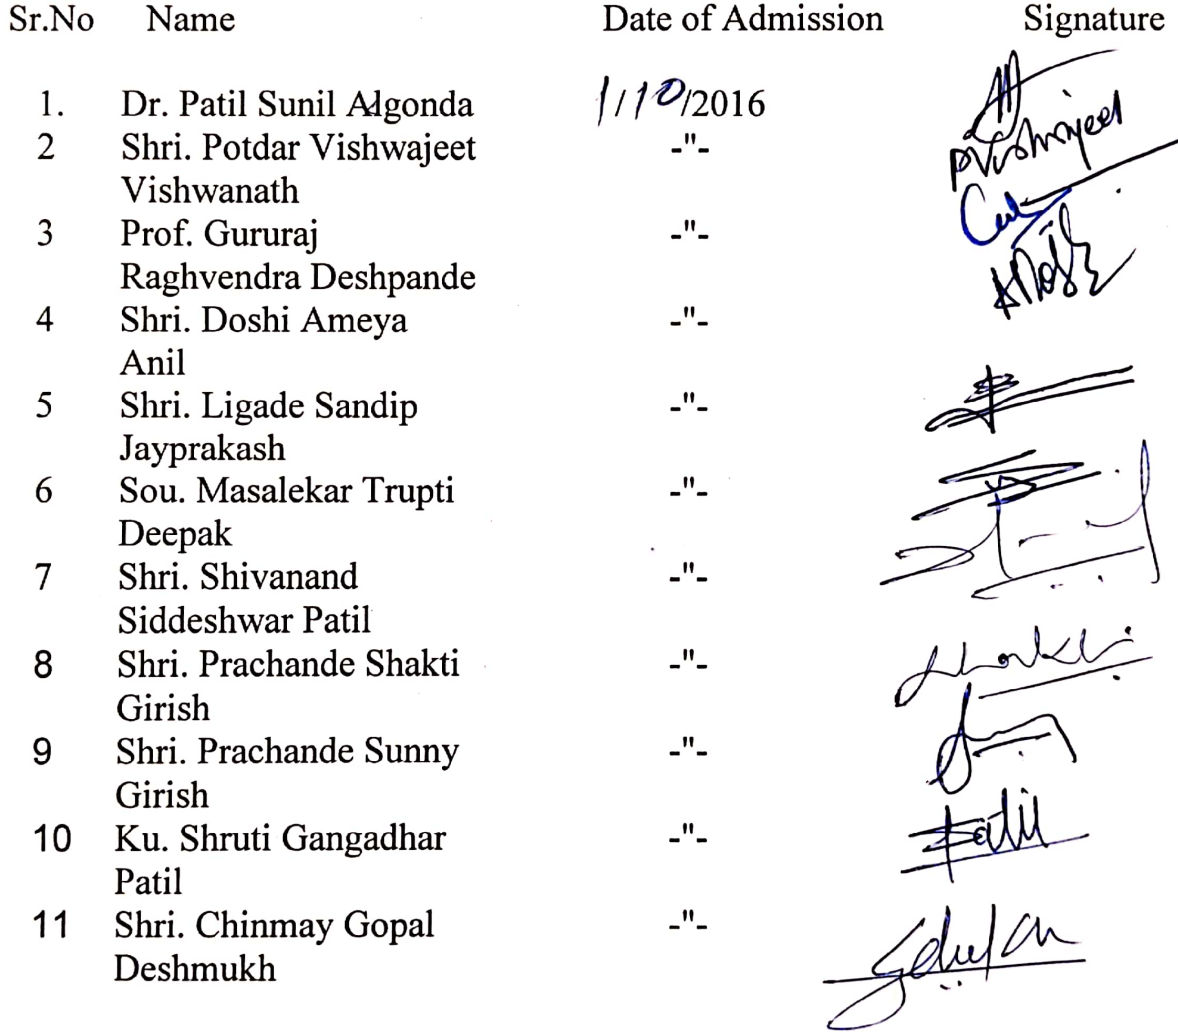 Sr.No Name Date of Admission Signature
1. Dr. Patil Sunil Algonda 1/10/2016
2 Shri. Potdar Vishwajeet -"- PVishwajeet
Vishwanath
3 Prof. Gururaj -"-
Raghvendra Deshpande
4 Shri. Doshi Ameya -"-
Anil
5 Shri. Ligade Sandip -"-
Jayprakash
6 Sou. Masalekar Trupti -"-
Deepak
7 Shri. Shivanand -"-
Siddeshwar Patil
8 Shri. Prachande Shakti -"-
Girish
9 Shri. Prachande Sunny -"-
Girish
10 Ku. Shruti Gangadhar -"- Patil
Patil
11 Shri. Chinmay Gopal -"-
Deshmukh